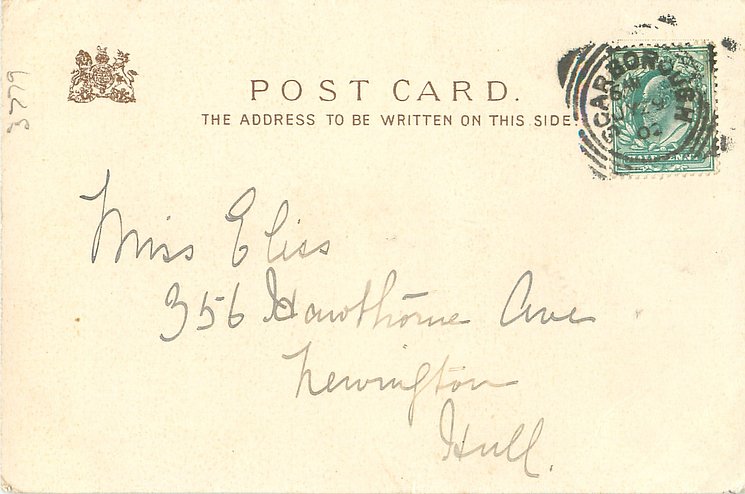 POST CARD.
THE ADDRESS TO BE WRITTEN ON THIS SIDE.
SCARBOROUGH
02
HALFPENNY
3779
Miss Eliss
356 Hawthorne Ave
Newington
Hull.